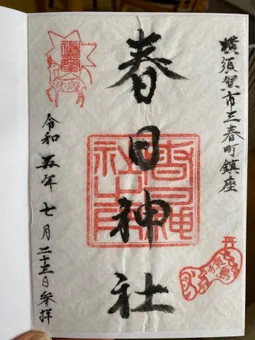 横須賀市三春町鎮座
春日神社
令和五年 七月二十三日参拝